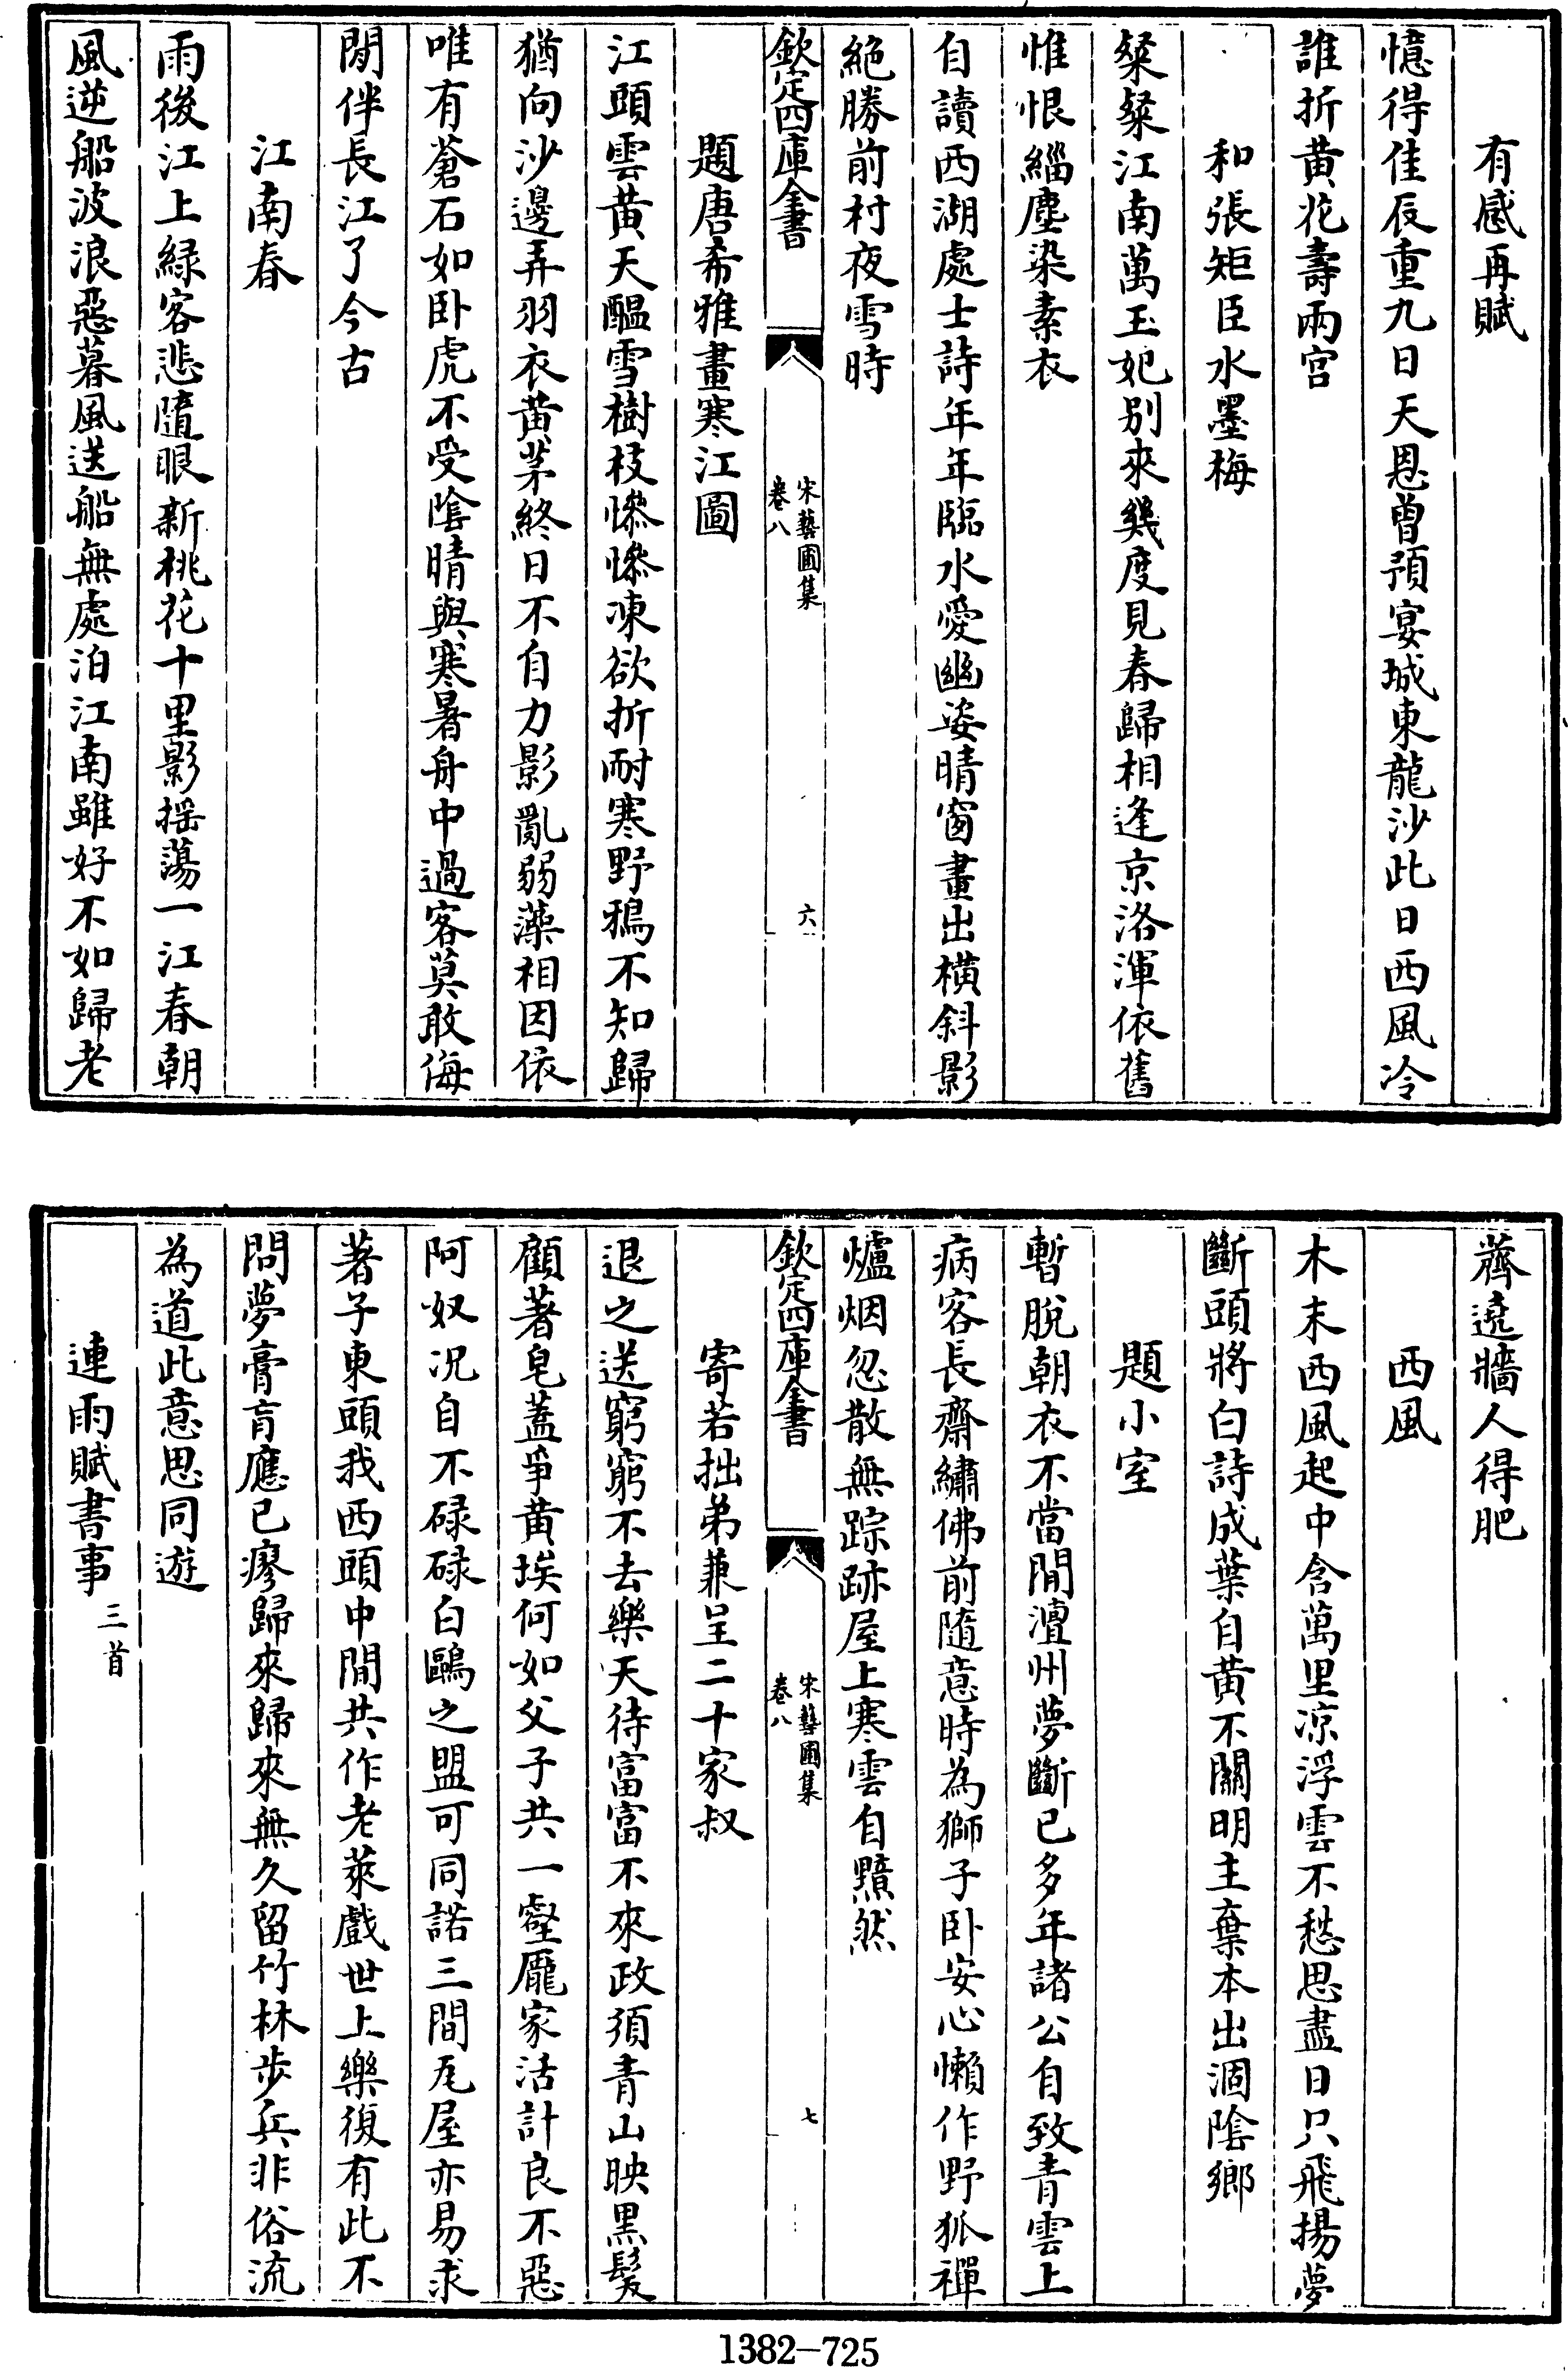 有感再賦
憶得佳辰重九日天恩曾預宴城東龍沙此日西風冷
誰折黃花壽兩宮
和張矩臣水墨梅
粲粲江南萬玉妃別來幾度見春歸相逢京洛渾依舊
惟恨緇塵染素衣
自讀西湖處士詩年年臨水愛幽姿晴窗畫出橫斜影
絕勝前村夜雪時
欽定四庫全書
宋藝圃集
卷八
六
題唐希雅畫寒江圖
江頭雲黃天醖雪樹枝慘慘凍欲折耐寒野鴉不知歸
猶向沙邊弄羽衣黃茅終日不自力影亂弱藻相因依
唯有蒼石如卧虎不受陰晴與寒暑舟中過客莫敢侮
閒伴長江了今古
江南春
雨後江上綠客悲隨眼新桃花十里影搖蕩一江春朝
風逆船波浪惡暮風送船無處泊江南雖好不如歸老
薺遶牆人得肥
西風
木末西風起中含萬里涼浮雲不愁思盡日只飛揚夢
斷頭將白詩成葉自黃不關明主棄本出涸陰鄉
題小室
暫脫朝衣不當閒澶州夢斷已多年諸公自致青雲上
病客長齋繡佛前隨意時為獅子卧安心懶作野狐禪
爐烟忽散無踪跡屋上寒雲自黯然
欽定四庫全書
宋藝圃集
卷八
七
寄若拙弟兼呈二十家叔
退之送窮窮不去樂天待富富不來政須青山映黑髮
顧著皂蓋爭黃埃何如父子共一壑龐家活計良不惡
阿奴况自不碌碌白鷗之盟可同諾三間瓦屋亦易求
著子東頭我西頭中間共作老萊戲世上樂復有此不
問夢膏肓應已瘳歸來歸來無久留竹林步兵非俗流
為道此意思同遊
連雨賦書事三首
1382-725